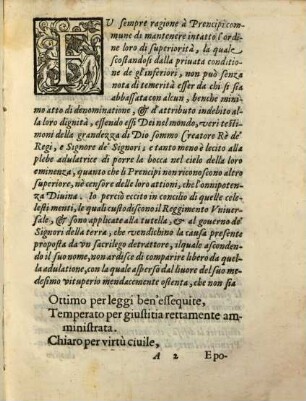 FU sempre ragione à Prencipi commune
di mantenere intatto l'ordine
loro di superiorità, la quale
scostandosi dalla priuata conditione
de gl'inferiori, non può senza
nota di temerità esser da chi se sia
abbassata con alcun, benche minimo
atto di denominatione, & d'attributo indebito alla
loro dignità, essendo essi Dei nel mondo, veri testimoni
della grandezza di Dio sommo Creatore Rè de'
Regi, e Signore de' Signori, e tanto menò lecito alla
plebe adulatrice di porre la bocca nel cielo della loro
eminenza, quanto che li Prencipi non riconoscono altro
superiore, nè censore delle loro attioni, che l'onnipotenza
Diuina. Io perciò eccito in concilio di quelle celesti
menti, le quali custodiscono il Reggimento Vniuersale,
& sono applicate alla tuttella, & al gouerno de'
Signori della terra, che vendichino la causa presente
proposta da vn sacrilego detrattore, il quale ascondendo
il suo nome, non ardisce di comparire libero da quella
adulatione, con la quale aspersò dal liuore del suo medesimo
vituperio mendacemente ostenta, che non sia
Ottimo per leggi ben'essequite,
Temperato per giustitia rettamente amministrata.
Chiaro per virtù ciuile,
A 2 E po-